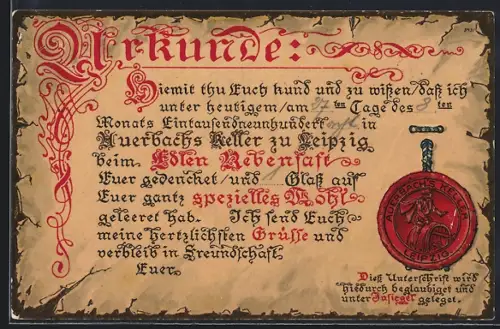 Urkunde:
Hiemit thu Euch kund und zu wißen/daß ich
unter heutigem/am 27 ten Tage des 8 ten
Monats Eintausendneunhundert in
Auerbachs Keller zu Leipzig
beim Edlen Rebensaft
Euer gedencket/und Glaß auf
Euer gantz spezielles Wohl
geleeret hab. Ich send Euch
meine hertzlichsten Grüsse und
verbleib in Freundschaft
Euer
AUERBACHS KELLER
LEIPZIG
Dieß Unterschrift wird
hiedurch beglaubiget und
unter Insiegel geleget.